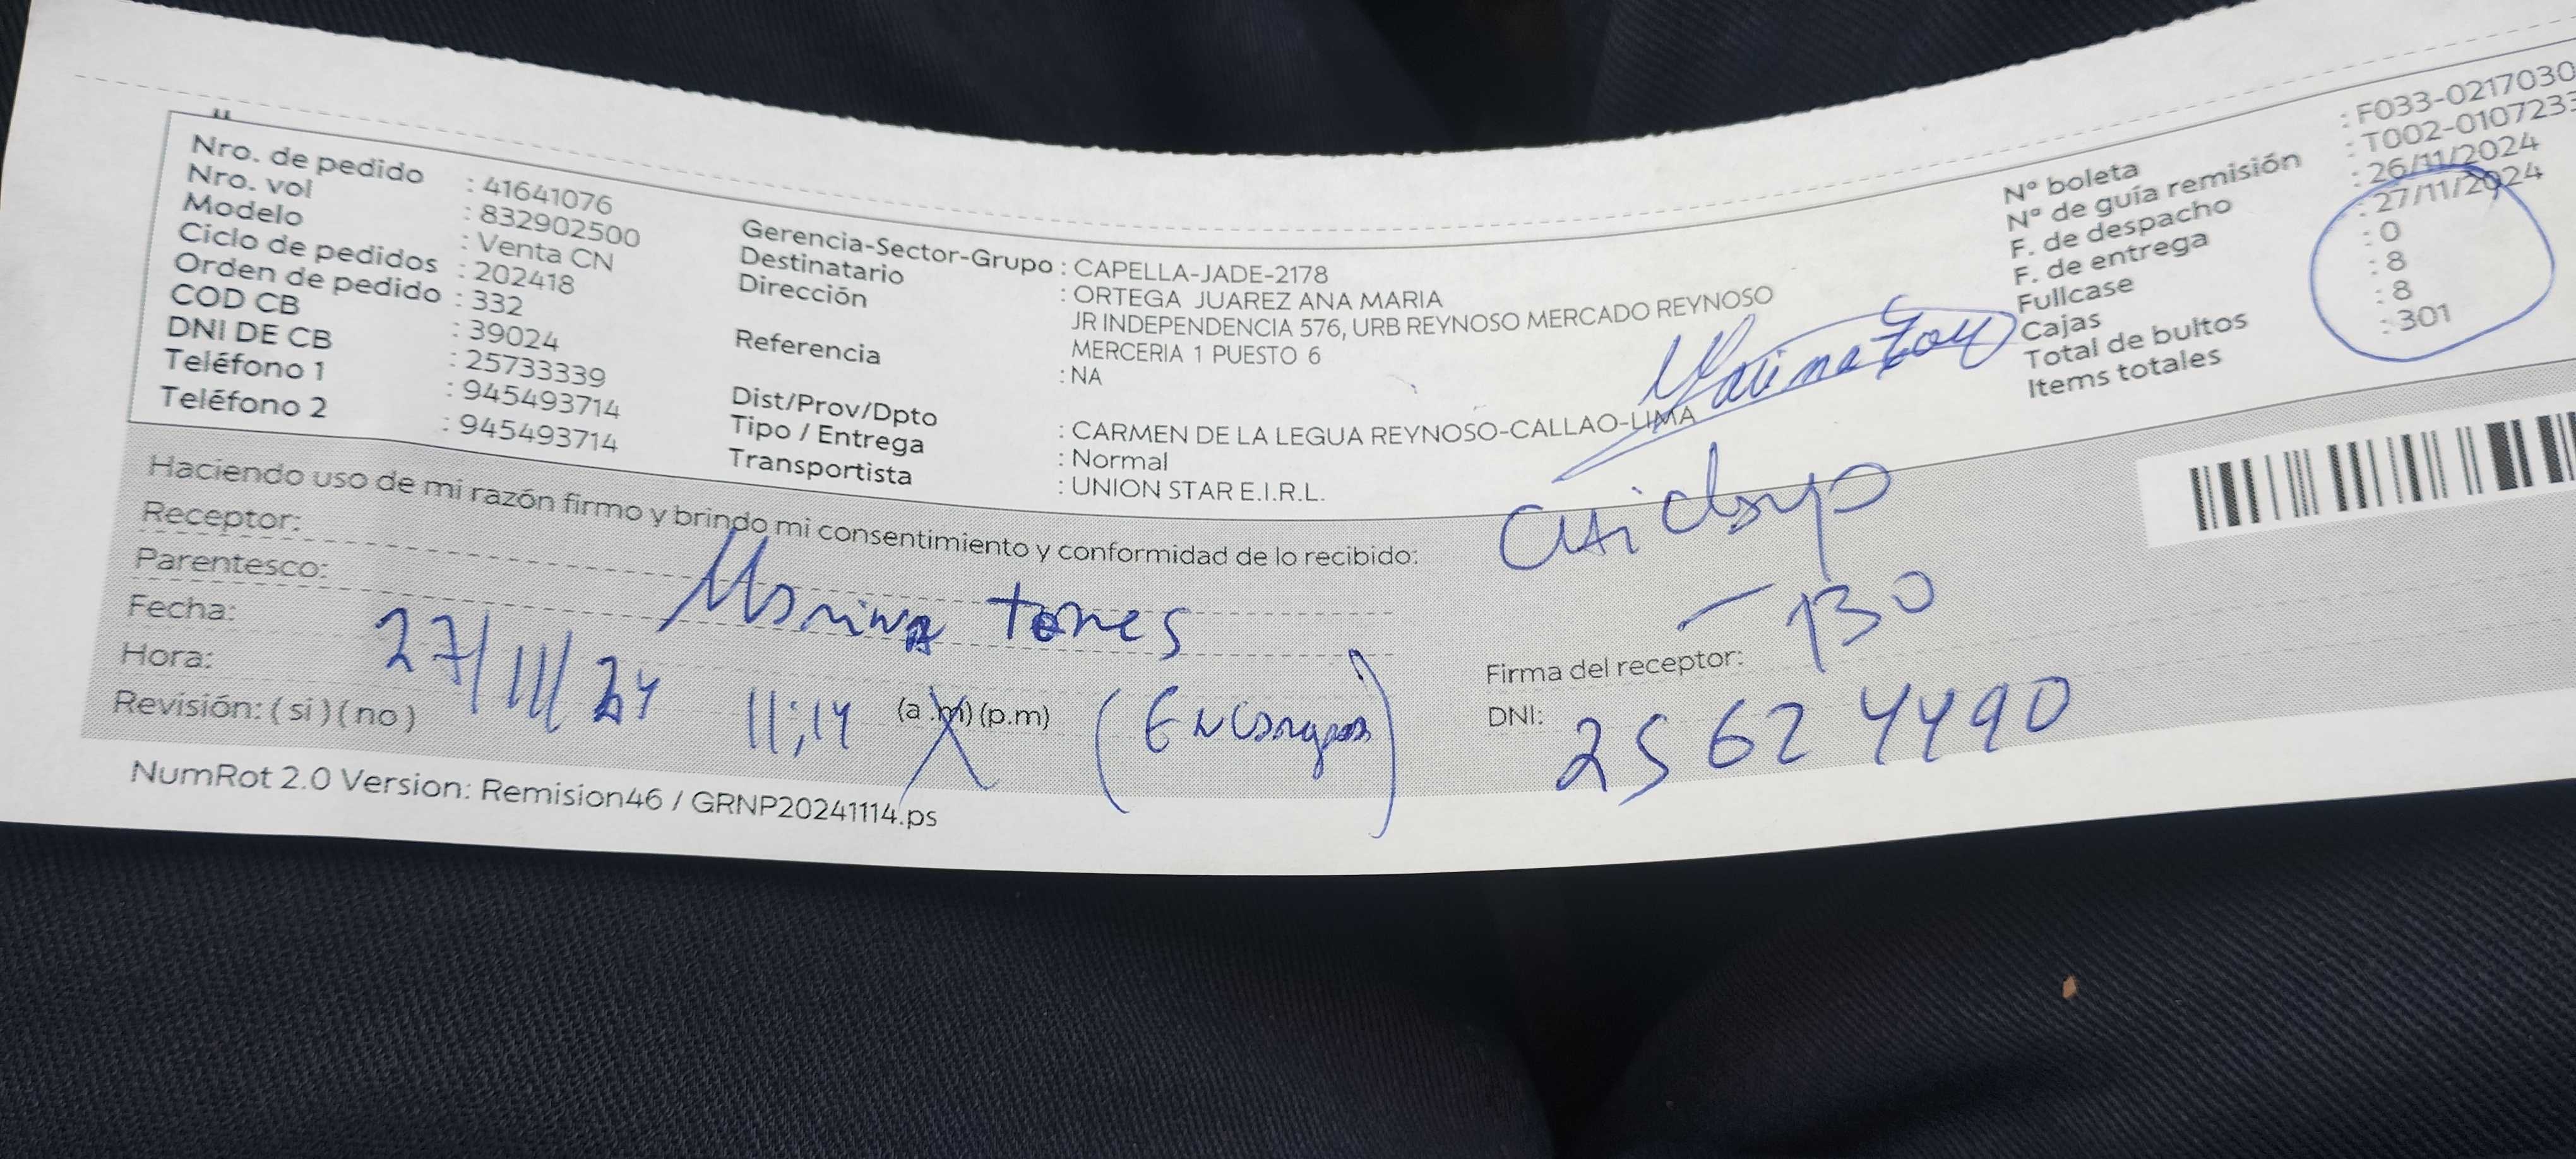 Nro. de pedido : 41641076
Nro. vol : 832902500
Modelo : Venta CN
Ciclo de pedidos : 202418
Orden de pedido : 332
COD CB : 39024
DNI DE CB : 25733339
Teléfono 1 : 945493714
Teléfono 2 : 945493714
Gerencia-Sector-Grupo : CAPELLA-JADE-2178
Destinatario : ORTEGA JUAREZ ANA MARIA
Dirección : JR INDEPENDENCIA 576, URB REYNOSO MERCADO REYNOSO
MERCERIA 1 PUESTO 6
Referencia : NA
Dist/Prov/Dpto : CARMEN DE LA LEGUA REYNOSO-CALLAO-LIMA
Tipo / Entrega : Normal
Transportista : UNION STAR E.I.R.L.
N° boleta : F033-0217030
N° de guía remisión : T002-0107233
F. de despacho : 26/11/2024
F. de entrega : 27/11/2024
Fullcase : 0
Cajas : 8
Total de bultos : 8
Items totales : 301
Haciendo uso de mi razón firmo y brindo mi consentimiento y conformidad de lo recibido:
Receptor: Marina torres
Parentesco:
Fecha: 27/11/24
Hora: 11:14 (a.m) (p.m)
Revisión: ( si ) ( no )
130
Firma del receptor:
DNI: 25624490
NumRot 2.0 Version: Remision46 / GRNP20241114.ps